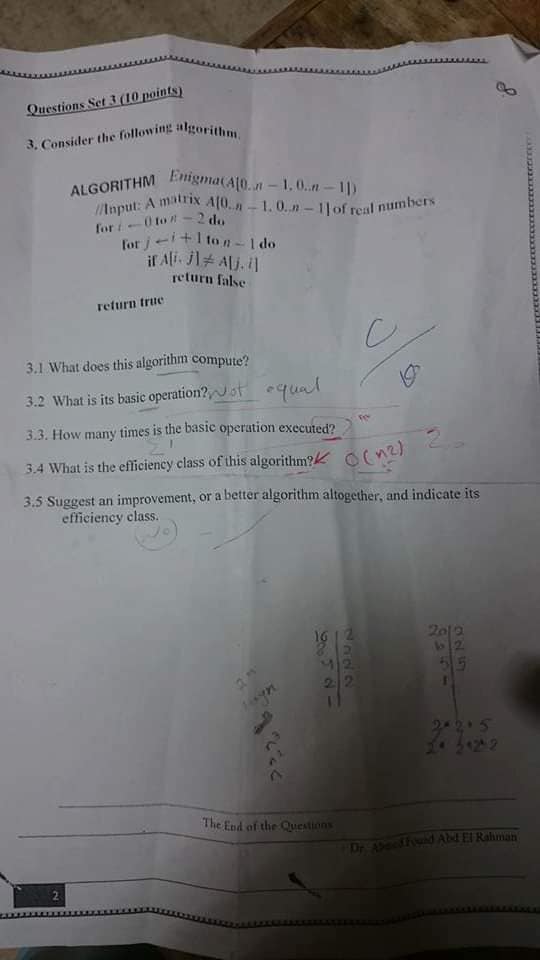 8
Questions Set 3 (10 points)
3. Consider the following algorithm.
ALGORITHM Enigma(A[0..n – 1, 0..n – 1])
//Input: A matrix A[0..n – 1, 0..n – 1] of real numbers
for i ← 0 to n – 2 do
for j ← i + 1 to n – 1 do
if A[i, j] ≠ A[j, i]
return false
return true
3.1 What does this algorithm compute?
3.2 What is its basic operation? Not equal
3.3. How many times is the basic operation executed?
3.4 What is the efficiency class of this algorithm? O(n2)
3.5 Suggest an improvement, or a better algorithm altogether, and indicate its
efficiency class.
No
16 2
8 2
4 2
2 2
1
20 2
2
5 5
1
2 * 2 * 5
The End of the Questions
Fouad Abd El Rahman
2